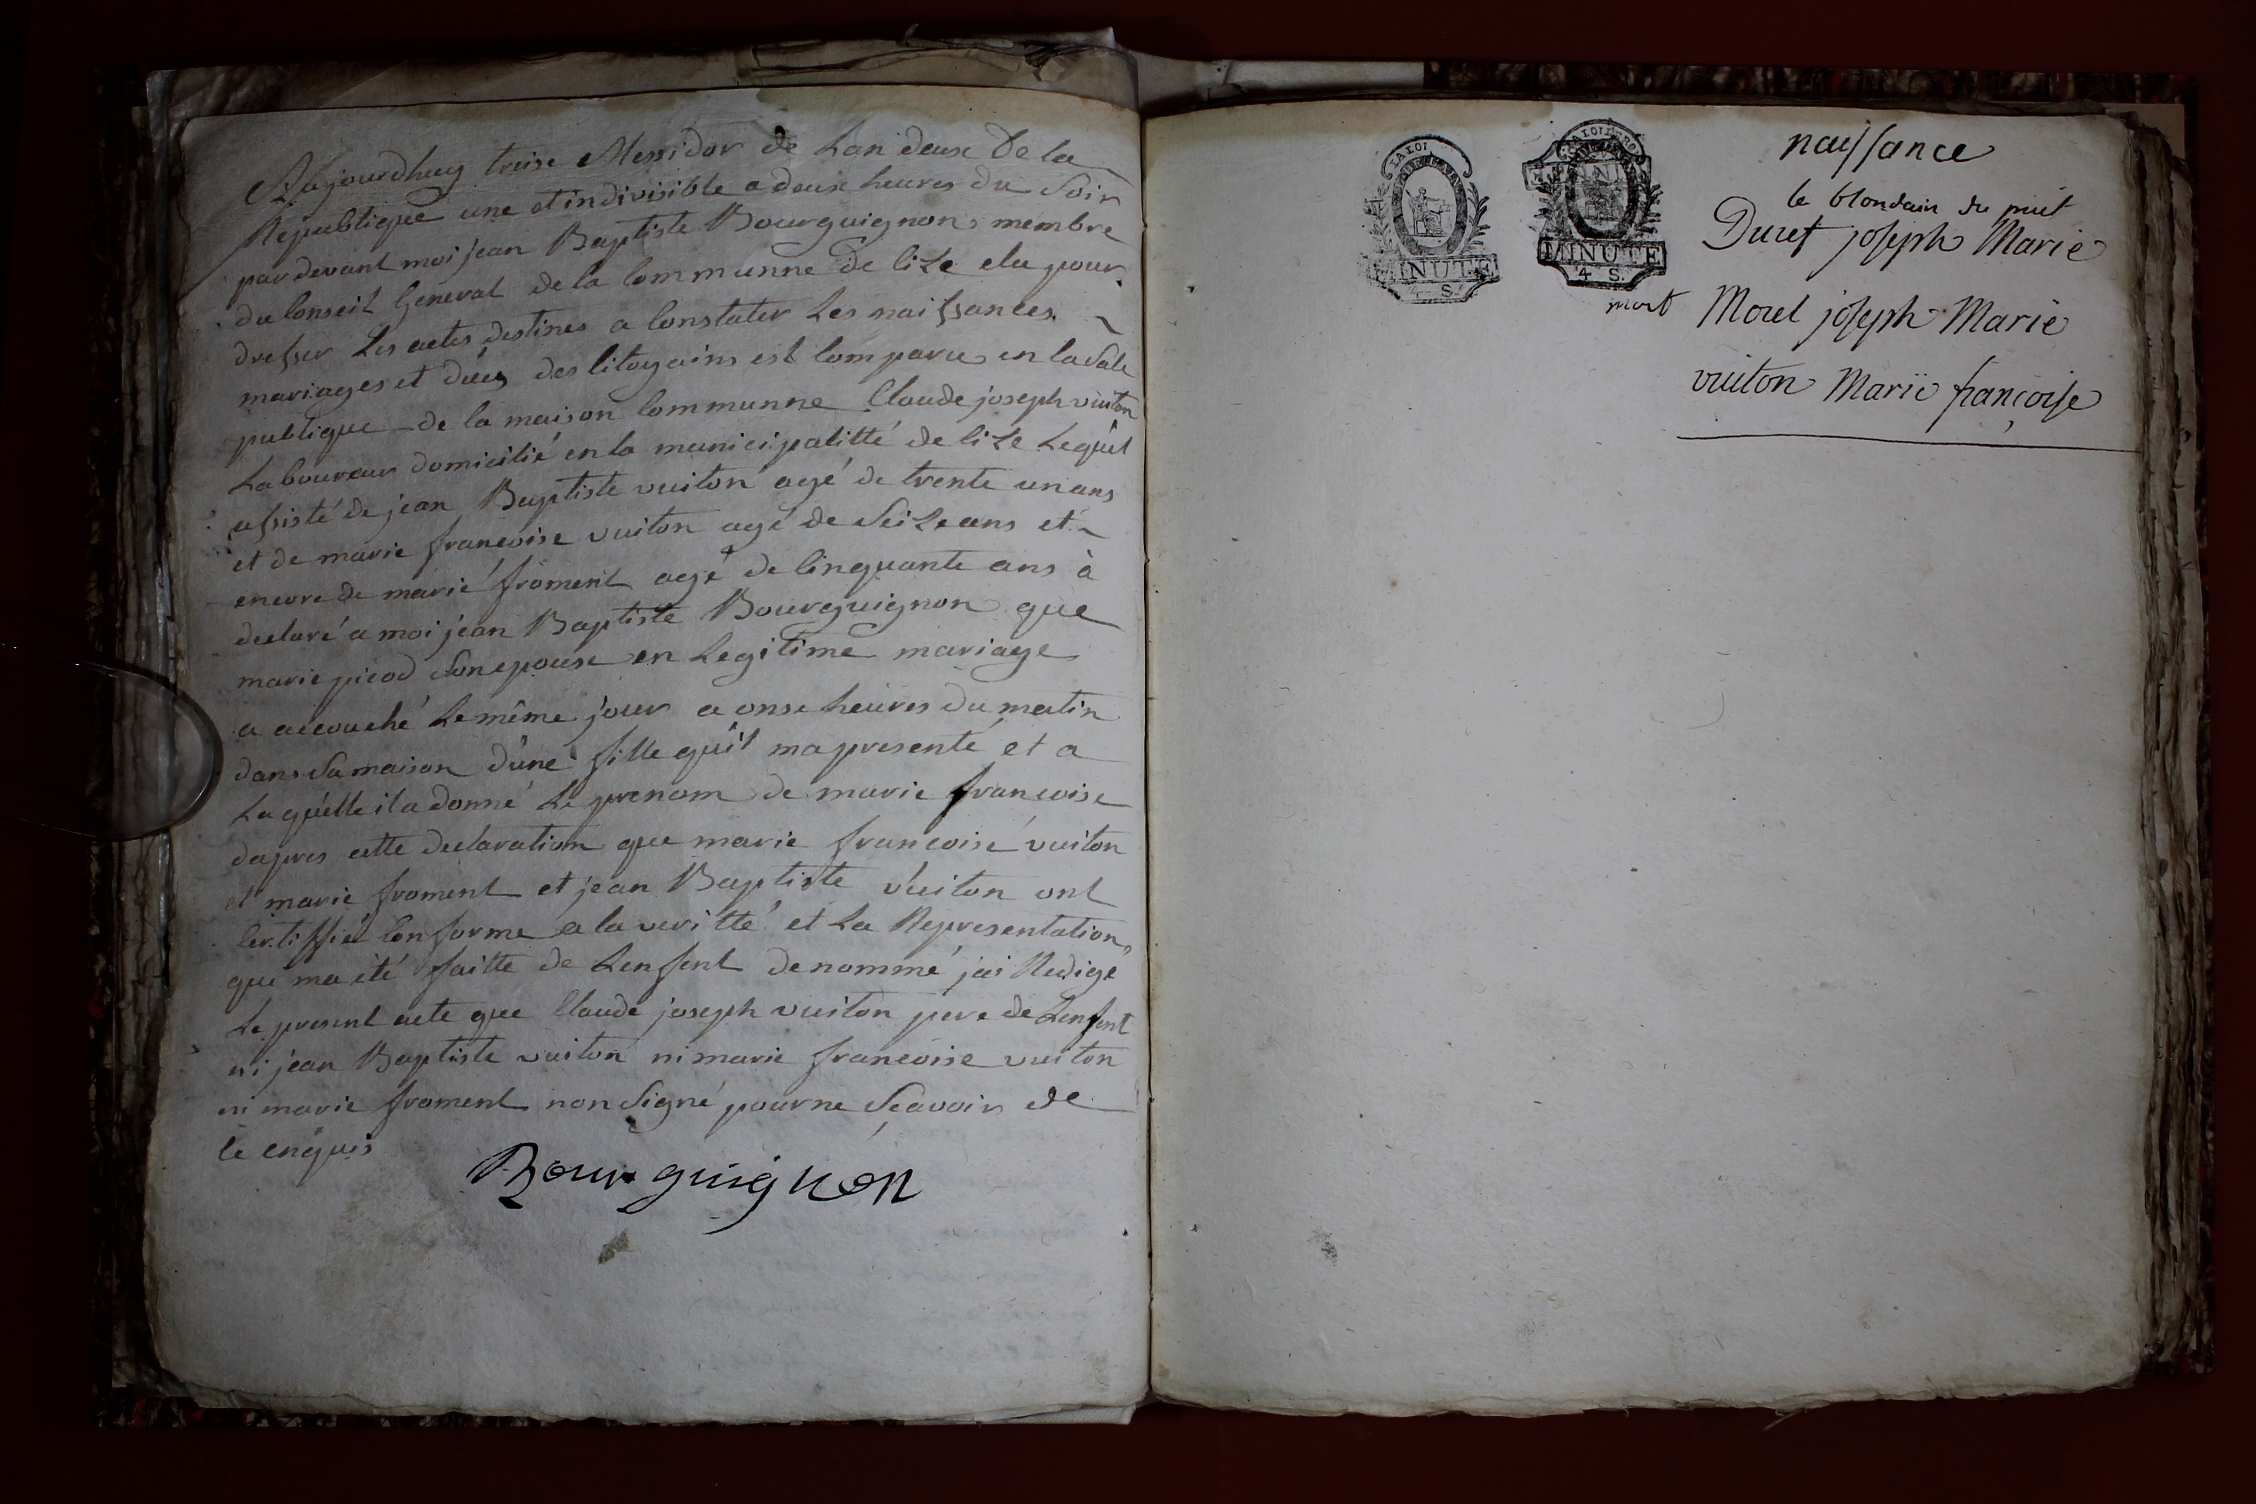 Aujourdhuy treise Messidor de Lan deux de la
Republique une et indivisible a deux heures du Soir
par devant moi jean Baptiste Bourguignon membre
du Conseil General de la Communne de lile elu pour
dresser Les actes destines a Constater Les naissances
mariages et décés des Citoyains est Comparu en la Sale
publique de la maison Communne Claude joseph vuiton
Laboureur domicilié en la municipalitté de lile Lequel
assisté de jean Baptiste vuiton agé de trente un ans
et de marie francoise vuiton agé de Seize ans et
encore de marie froment agé de Cinquante ans à
declaré a moi jean Baptiste Bourguignon que
marie picod Son epouse en Legitime mariage
a accouché Le même jour a onse heures du matin
dans Sa maison d'une fille qu'il ma presenté et a
Laquelle il a donné Le prenom de marie francoise
dapres cette declaration que marie francoise vuiton
et marie froment et jean Baptiste vuiton ont
Certiffié Conforme a la veritté et La Representation
qui ma été faitte de Lenfent denommé jai Redigé
Le present acte que Claude joseph vuiton pere de Lenfent
ni jean Baptiste vuiton ni marie francoise vuiton
ni marie froment non Signé pour ne Sçavoir de
ce enquis
Bourguignon
LA LOI
MINUTE
4 S.
LA LOI
MINUTE
4 S.
naissance
le blondain du
Duret joseph Marie
mort Morel joseph Marie
vuiton Marie françoise